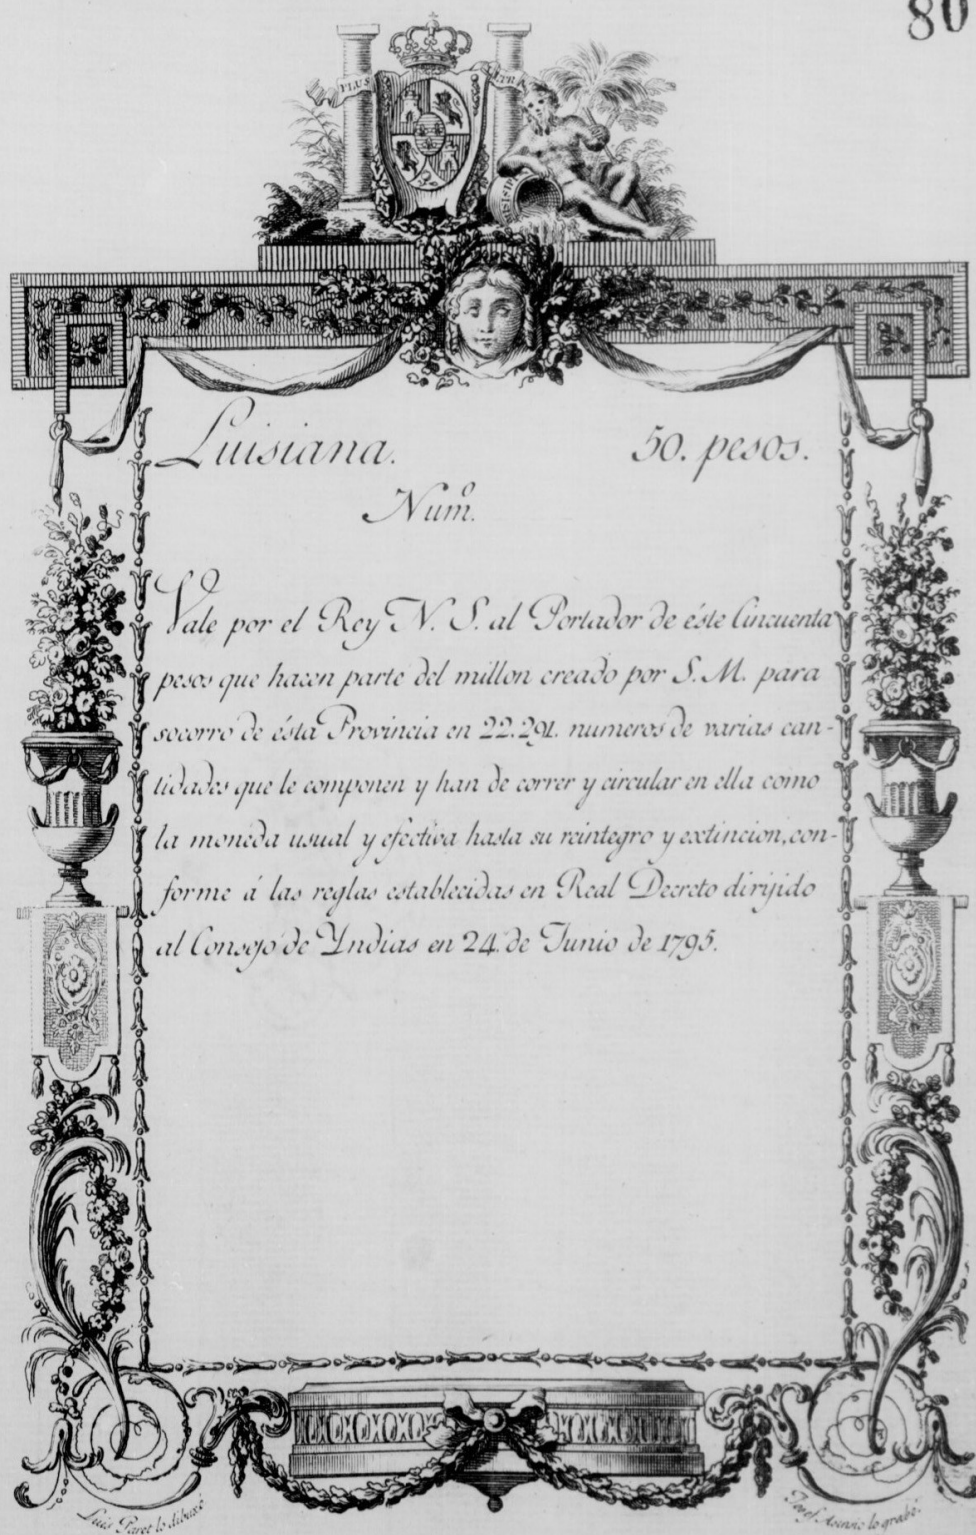 80
PLUS ULTRA
Luisiana. 50. pesos.
Numº.
Vale por el Rey N. S. al Portador de éste Cincuenta
pesos que hacen parte del millon creado por S. M. para
socorro de ésta Provincia en 22.291. numeros de varias can-
tidades que le componen y han de correr y circular en ella como
la moneda usual y efectiva hasta su reintegro y extincion, con-
forme á las reglas establecidas en Real Decreto dirijido
al Consejo de Yndias en 24. de Junio de 1795.
Luis Paret lo dibuxó
Josef Asensio lo grabó.